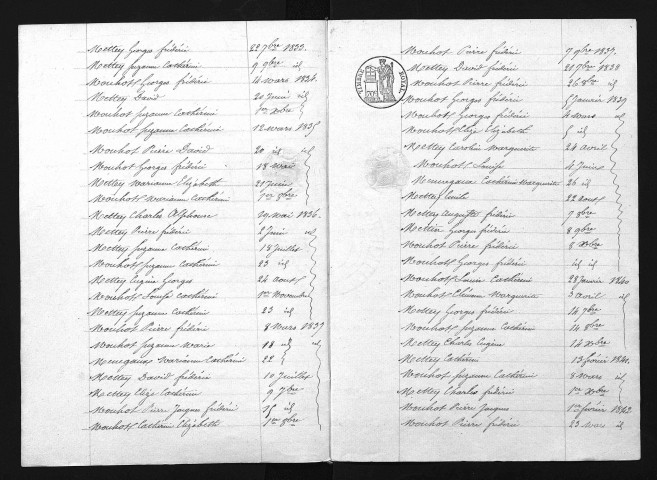 Mettey Georges frédéric 22 7bre 1833.
Mettey suzanne Cathérine 9 9bre id
Mouhot Georges frédéric 14 mars 1834.
Mettey David 20 Juin id
Mouhot suzanne Cathérine 1er Xbre
Mouhot suzanne Cathérine 12 mars 1835
Mouhot Pierre David 20 id id
Mouhot Georges frédéric 18 mai
Mettey marianne Elizabeth 21 Juin
Mouhot marianne Cathérine 1er 8bre
Mettey Charles Alphonse 29 mai 1836.
Mettey Pierre frédéric 2 Juin id
Mettey suzanne Cathérine 18 Juillet
Mouhot suzanne Cathérine 23 id
Mettey Eugène Georges 24 aout
Mouhot Louise Cathérine 1er Novembre
Mettey suzanne Cathérine 23 id
Mouhot Pierre frédéric 8 mars 1837
Mouhot suzanne marie 18 id id
Menegaux marianne Cathérine 22
Mettey David frédéric 10 Juillet
Mettey Elize Cathérine 9 7bre
Mouhot Pierre Jacques frédéric 15 id
Mouhot Cathérine Elizabeth 1er 8bre
TIMBRE ROYAL
Mouhot Pierre frédéric 7 9bre 1837.
Mettey David frédéric 20 7bre 1838
Mouhot Pierre frédéric 26 8bre id
Mouhot Georges frédéric 5 Janvier 1839
Mouhot Georges frédéric 4 mars id
Mouhot Elize Elizabeth 5 id
Mettey Caroline marguerite 28 avril
Mouhot Louise 4 Juin
Menegaux Cathérine marguerite 26 id
Mettey Emile 22 aout
Mettey Auguste frédéric 9 8bre
Mettey Georges frédéric 8 9bre
Mouhot Pierre frédéric 8 Xbre
Mouhot Georges frédéric id id
Mouhot Louise Cathérine 28 Janvier 1840
Mouhot Eléonore marguerite 3 avril id
Mettey Georges frédéric 14 7bre
Mouhot suzanne Cathérine 14 8bre
Mettey Charles Eugène 14 Xbre
Mettey Cathérine 13 février 1841
Mouhot suzanne Cathérine 8 mars id
Mettey Charles frédéric 1er Xbre
Mouhot Pierre Jacques 1er février 1842
Mouhot Pierre frédéric 23 mars id